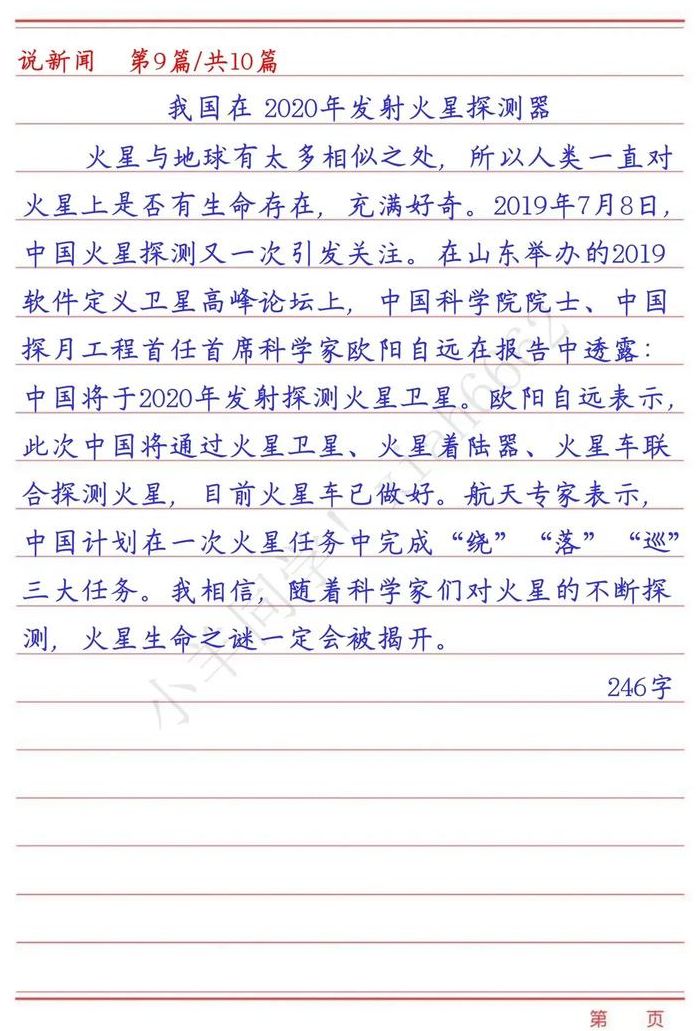 说新闻 第9篇/共10篇
我国在 2020年发射火星探测器
火星与地球有太多相似之处，所以人类一直对
火星上是否有生命存在，充满好奇。2019年7月8日，
中国火星探测又一次引发关注。在山东举办的2019
软件定义卫星高峰论坛上，中国科学院院士、中国
探月工程首任首席科学家欧阳自远在报告中透露：
中国将于2020年发射探测火星卫星。欧阳自远表示，
此次中国将通过火星卫星、火星着陆器、火星车联
合探测火星，目前火星车已做好。航天专家表示，
中国计划在一次火星任务中完成“绕”“落”“巡”
三大任务。我相信，随着科学家们对火星的不断探
测，火星生命之谜一定会被揭开。
246字
第 页
小羊同学